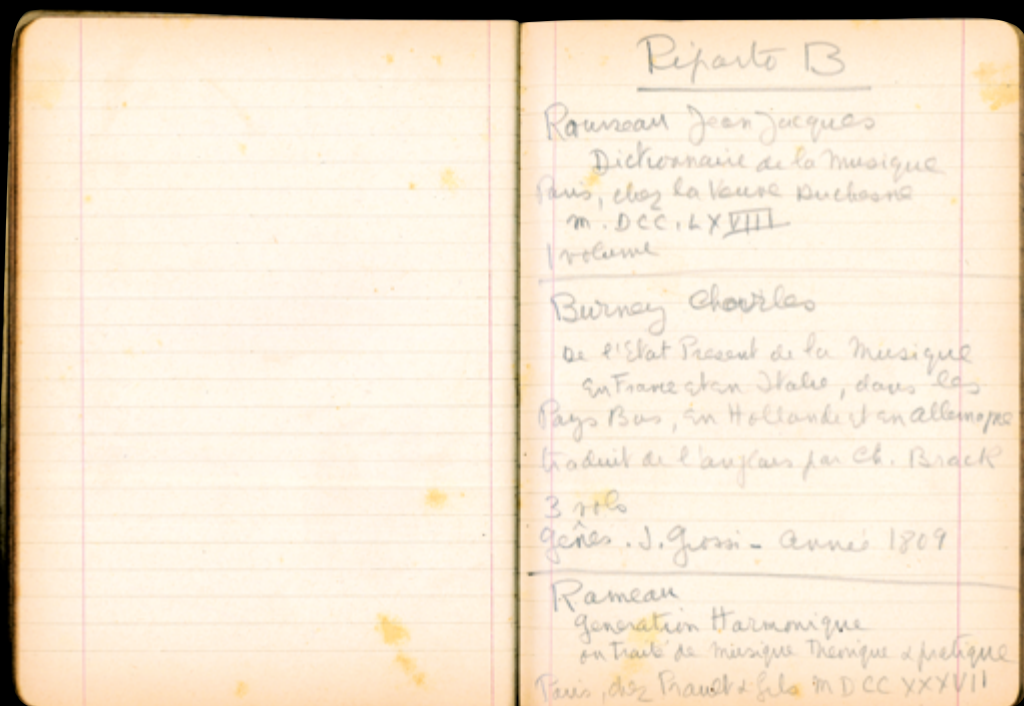 Riparto B
Rousseau Jean Jacques
Dictionnaire de la Musique
Paris, chez la Veuve Duchesne
M.DCC.LXVIII
1 volume
Burney Charles
De l'Etat Present de la Musique
en France et en Italie, dans les
Pays Bas, en Hollande et en Allemagne
traduit de l'anglais par Ch. Brack
3 vols
Gênes. J. Grossi - Année 1809
Rameau
Generation Harmonique
ou Traité de musique Theorique & pratique
Paris, chez Prault & fils MDCCXXXVII